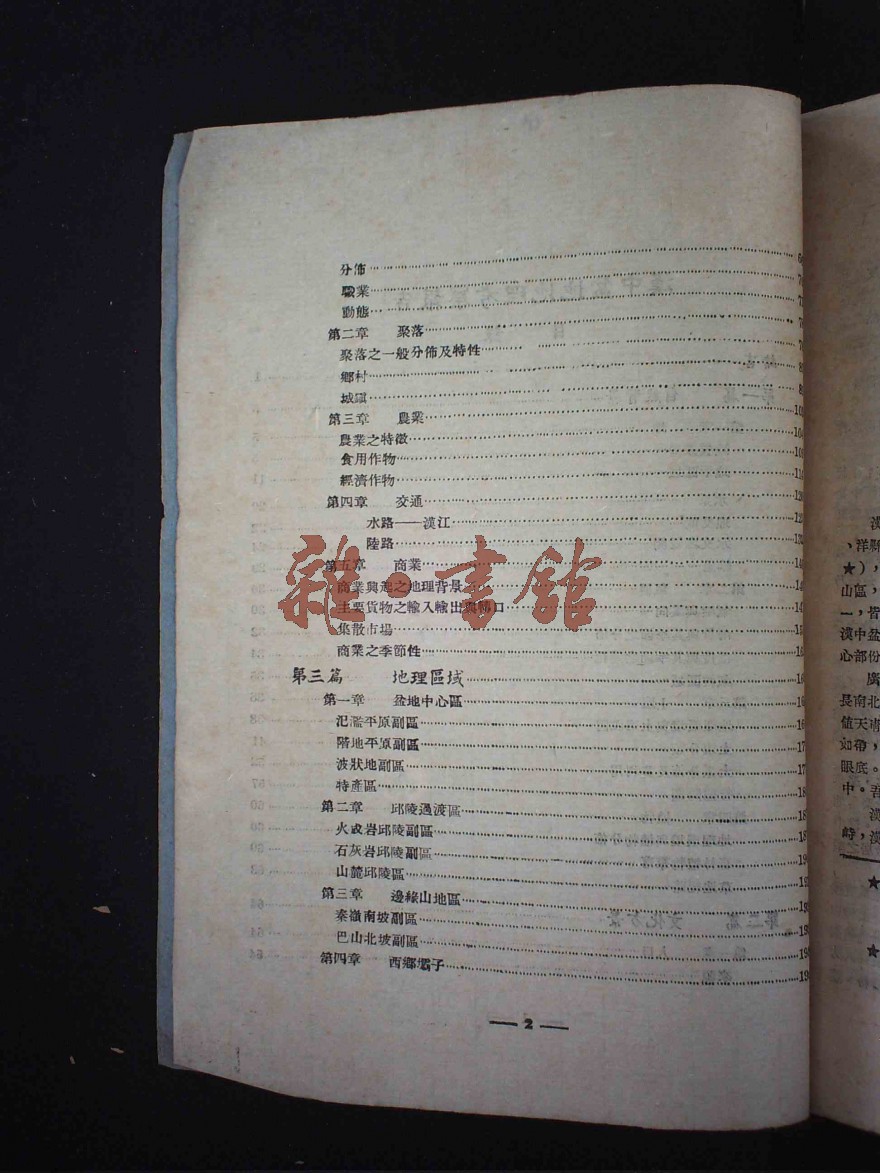 分佈
職業
動態
第二章 聚落
聚落之一般分佈及特性
鄉村
城鎭
第三章 農業
農業之特徵
食用作物
經濟作物
第四章 交通
水路——漢江
陸路
第五章 商業
商業興起之地理背景
主要貨物之輸入輸出與轉口
集散市場
商業之季節性
第三篇 地理區域
第一章 盆地中心區
氾濫平原副區
階地平原副區
波狀地副區
特產區
第二章 邱陵過渡區
火成岩邱陵副區
石灰岩邱陵副區
山麓邱陵區
第三章 邊緣山地區
秦嶺南坡副區
巴山北坡副區
第四章 西鄉壩子
— 2 —
雜·書館
漢
、洋縣
★），
山區，
一，皆
漢中盆
心部份
廣
長南北
值天
如帶，
眼底。
中。吾
漢
峙，漢
★
★